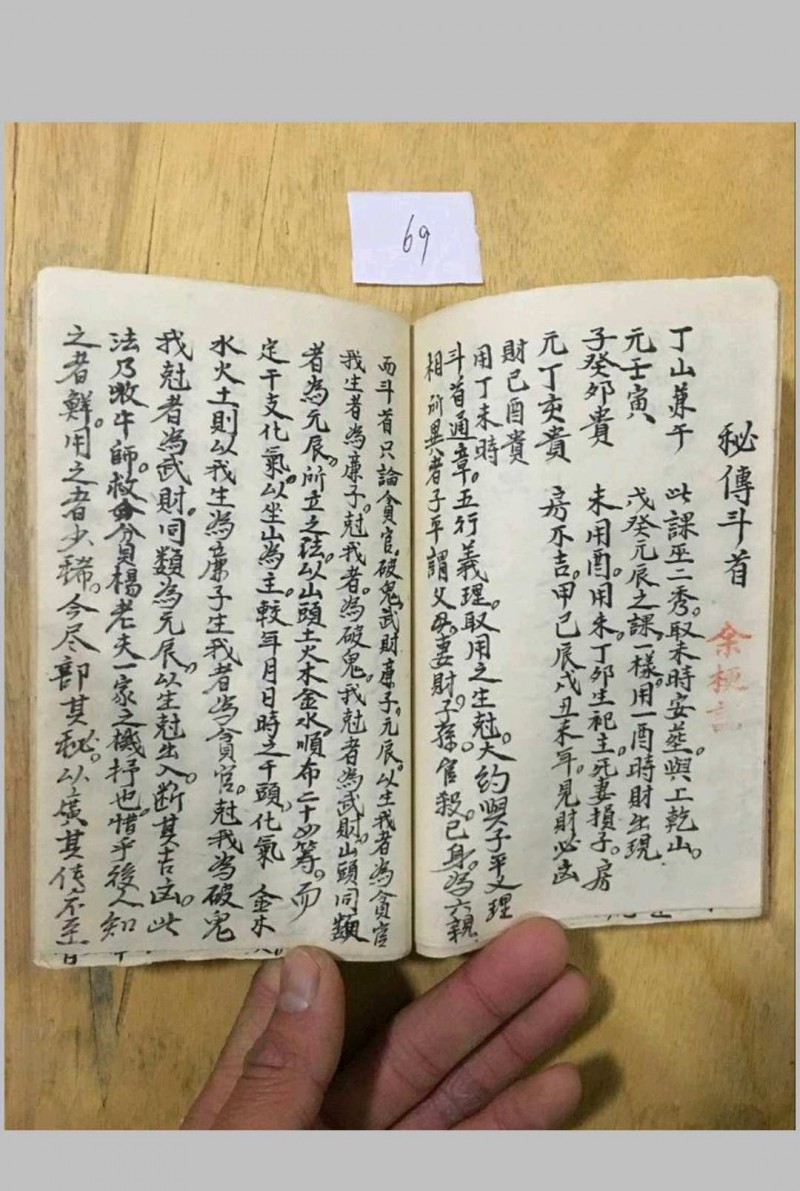 69
秘傳斗首
丁山兼午 此課巫二秀。取未時安葬。與上乾山。
元壬寅 戊癸元辰之課一樣。用一酉時財出現
子癸卯貴 未用酉。用未。丁卯生祀主。死妻損子。房
元丁亥貴 房不吉。甲己辰戌丑未年。見財必凶
財己酉貴
用丁未時
斗首通章。五行義理。取用之生尅。大約與子平义理
相所異者子平謂父母。妻財。子孫。官殺。己身。為六親
而斗首只論貪官。破鬼。武財。廉子。元辰。以生我者為貪官
我生者為廉子。尅我者。為破鬼。我尅者為武財。山頭同類
者為元辰。所立之法。以山頭土火木金水。順布二十四等。而
定干支化氣。以坐山為主。較年月日時之干頭。化氣 金木
水火土則以我生為廉子生我者為貪官。尅我為破鬼
我尅者為武財。同類為元辰。以生尅出入。斷其吉凶。此
法乃 牛師。救 楊老夫一家之機抒也。惜乎後人知
之者鮮。用之者少稀。今尽部其秘。以廣其傳不至